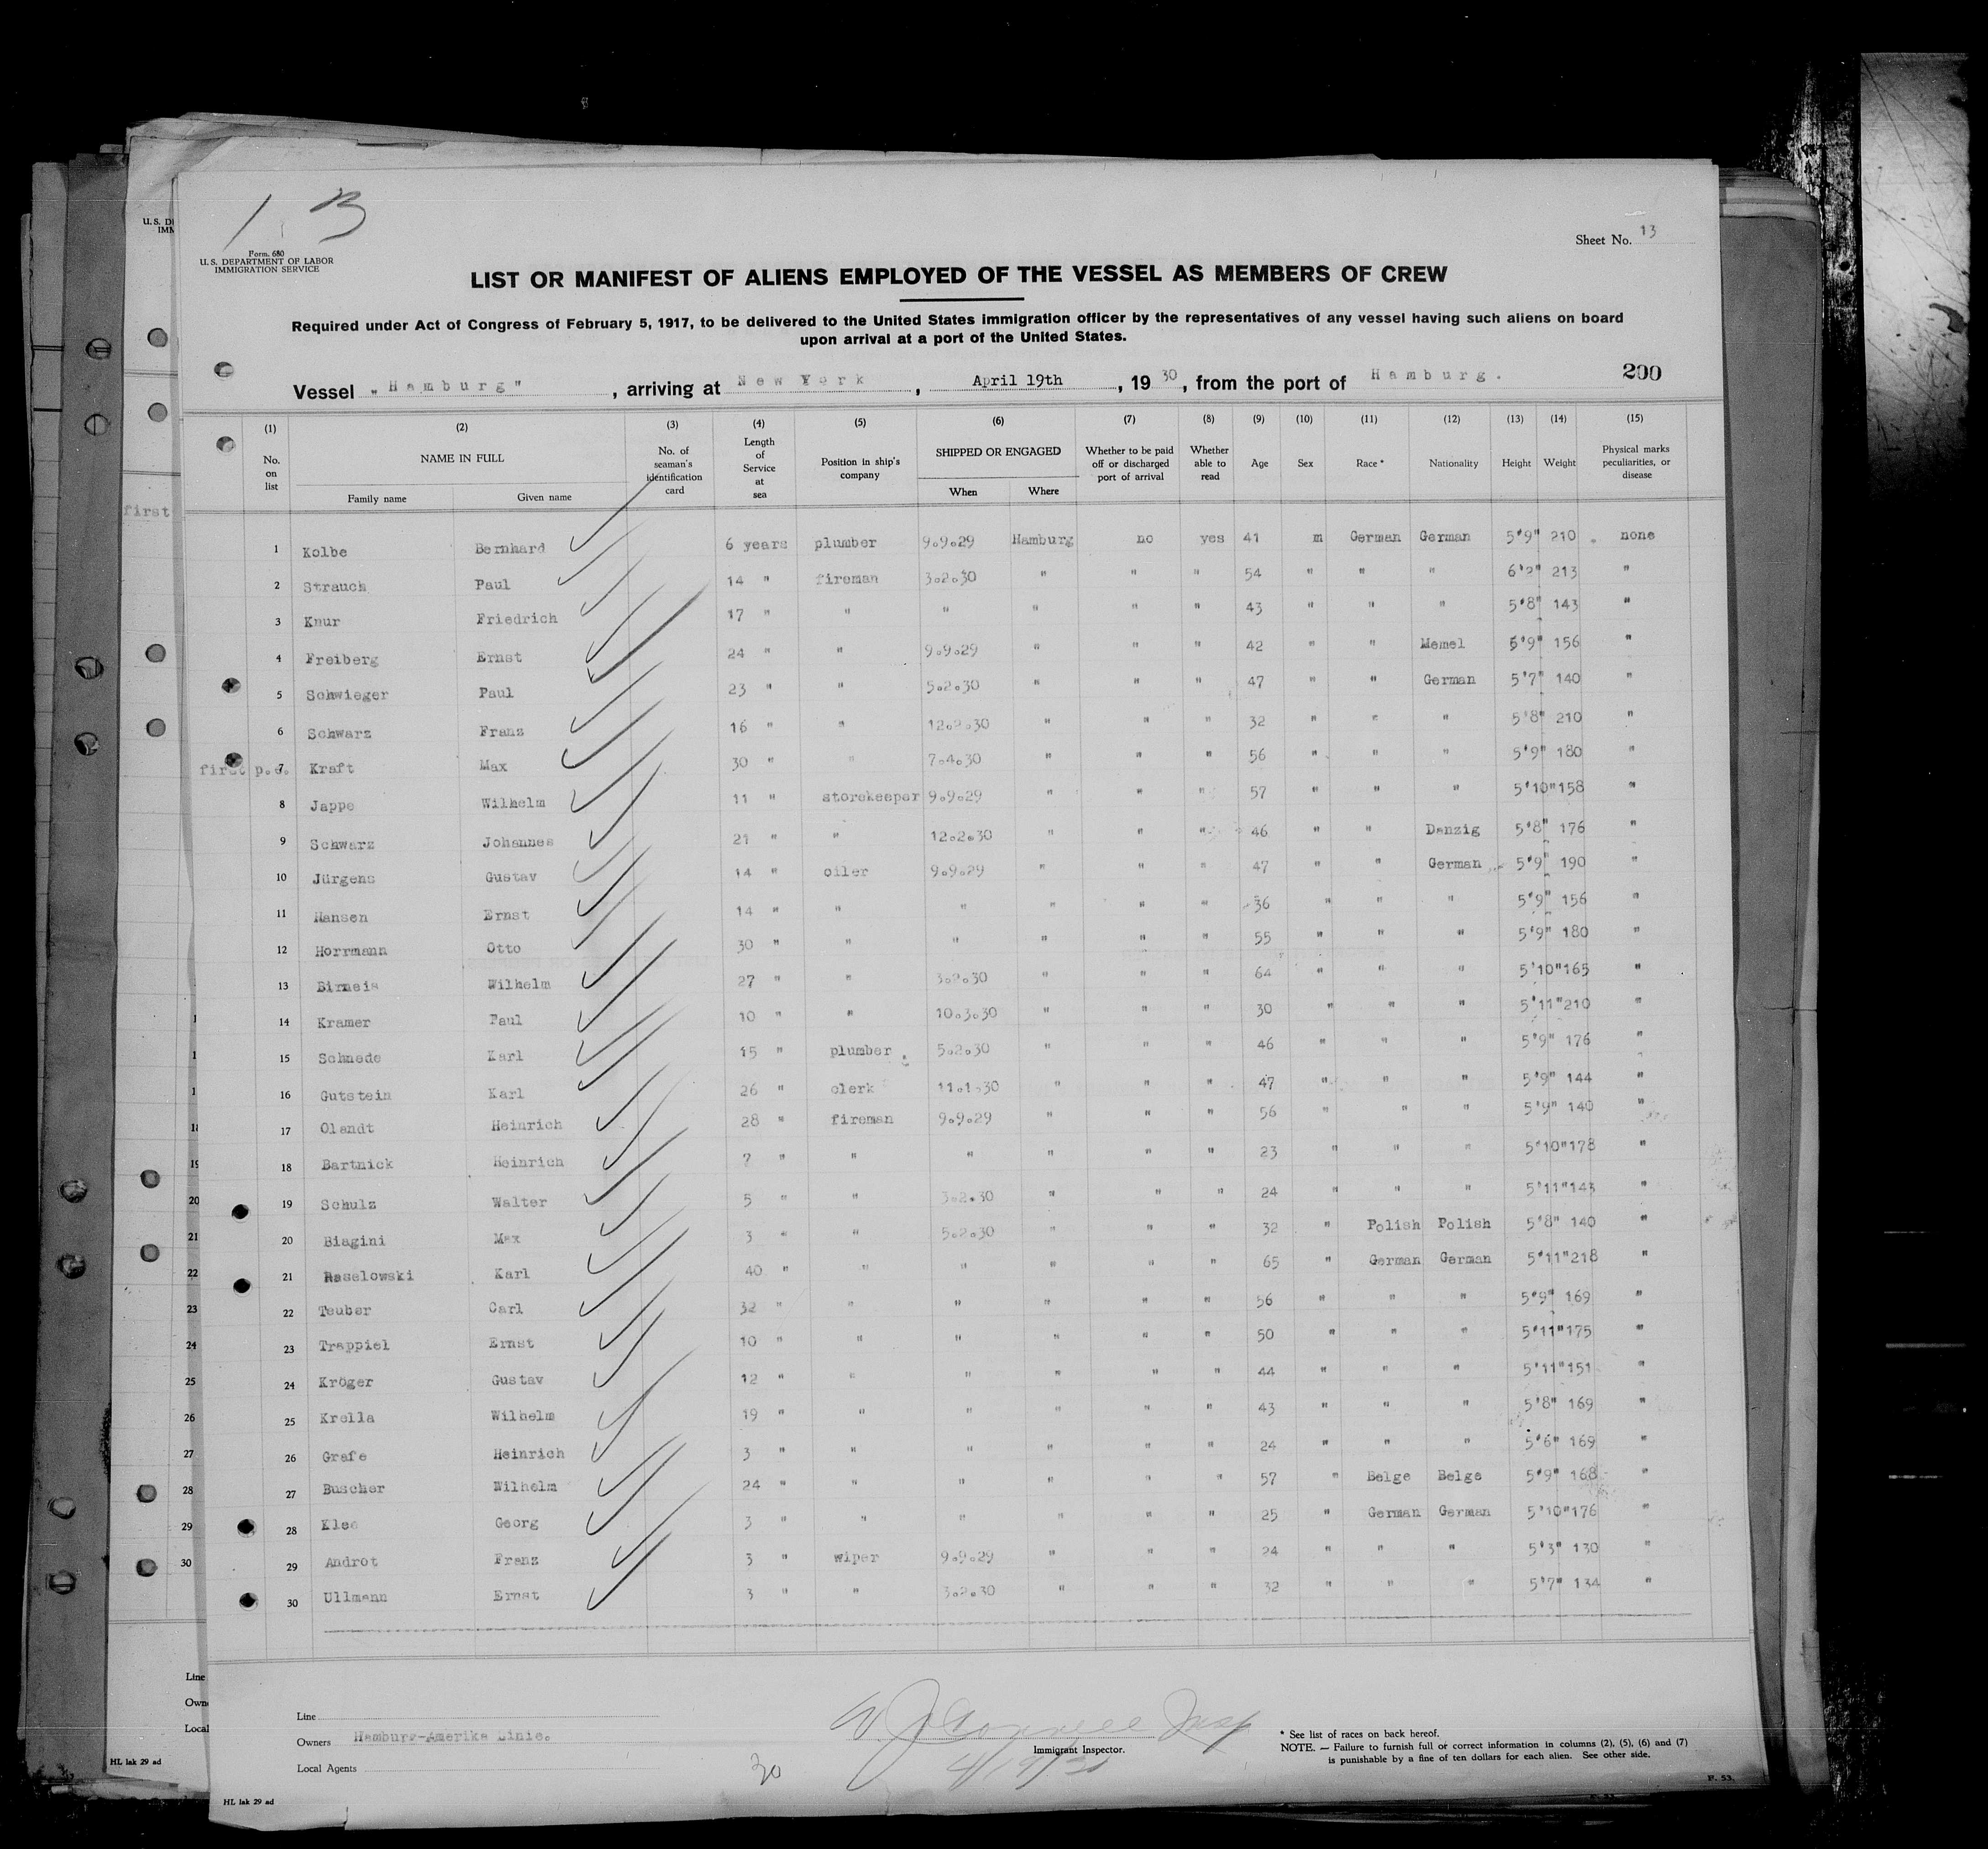 1 B
Form. 680
U. S. DEPARTMENT OF LABOR
IMMIGRATION SERVICE
Sheet No. 13
LIST OR MANIFEST OF ALIENS EMPLOYED OF THE VESSEL AS MEMBERS OF CREW
Required under Act of Congress of February 5, 1917, to be delivered to the United States immigration officer by the representatives of any vessel having such aliens on board
upon arrival at a port of the United States.
Vessel „Hamburg", arriving at New York, April 19th, 1930, from the port of Hamburg. 200
(1) (2) (3) (4) (5) (6) (7) (8) (9) (10) (11) (12) (13) (14) (15)
No. on list NAME IN FULL Family name Given name No. of seaman's identification card Length of Service at sea Position in ship's company SHIPPED OR ENGAGED When Where Whether to be paid off or discharged port of arrival Whether able to read Age Sex Race * Nationality Height Weight Physical marks peculiarities, or disease
1 Kolbe Bernhard 6 years plumber 9.9.29 Hamburg no yes 41 m German German 5'9" 210 none
2 Strauch Paul 14 " fireman 3.2.30 " " " 54 " " " 6'2" 213 "
3 Knur Friedrich 17 " " " " " " 43 " " " 5'8" 143 "
4 Freiberg Ernst 24 " " 9.9.29 " " " 42 " " Memel 5'9" 156 "
5 Schwieger Paul 23 " " 5.2.30 " " " 47 " " German 5'7" 140 "
6 Schwarz Franz 16 " " 12.2.30 " " " 32 " " " 5'8" 210 "
first p.e. 7 Kraft Max 30 " " 7.4.30 " " " 56 " " " 5'9" 180 "
8 Jappe Wilhelm 11 " storekeeper 9.9.29 " " " 57 " " " 5'10" 158 "
9 Schwarz Johannes 21 " " 12.2.30 " " " 46 " " Danzig 5'8" 176 "
10 Jürgens Gustav 14 " oiler 9.9.29 " " " 47 " " German 5'9" 190 "
11 Hansen Ernst 14 " " " " " " 36 " " " 5'9" 156 "
12 Horrmann Otto 30 " " " " " " 55 " " " 5'9" 180 "
13 Birneis Wilhelm 27 " " 3.2.30 " " " 64 " " " 5'10" 165 "
14 Kramer Paul 10 " " 10.3.30 " " " 30 " " " 5'11" 210 "
15 Schnede Karl 15 " plumber 5.2.30 " " " 46 " " " 5'9" 176 "
16 Gutstein Karl 26 " clerk 11.1.30 " " " 47 " " " 5'9" 144 "
17 Olandt Heinrich 28 " fireman 9.9.29 " " " 56 " " " 5'9" 140 "
18 Bartnick Heinrich 7 " " " " " " 23 " " " 5'10" 178 "
19 Schulz Walter 5 " " 3.2.30 " " " 24 " " " 5'11" 143 "
20 Biagini Max 3 " " 5.2.30 " " " 32 " Polish Polish 5'8" 140 "
21 Raselowski Karl 40 " " " " " " 65 " German German 5'11" 218 "
22 Teuber Carl 32 " " " " " " 56 " " " 5'9" 169 "
23 Trappiel Ernst 10 " " " " " " 50 " " " 5'11" 175 "
24 Kröger Gustav 12 " " " " " " 44 " " " 5'11" 151 "
25 Krella Wilhelm 19 " " " " " " 43 " " " 5'8" 169 "
26 Grafe Heinrich 3 " " " " " " 24 " " " 5'6" 169 "
27 Buscher Wilhelm 24 " " " " " " 57 " Belge Belge 5'9" 168 "
28 Klee Georg 3 " " " " " " 25 " German German 5'10" 176 "
29 Androt Franz 3 " wiper 9.9.29 " " " 24 " " " 5'3" 130 "
30 Ullmann Ernst 3 " " 3.2.30 " " " 32 " " " 5'7" 134 "
Line
Owners Hamburg-Amerika Linie.
Local Agents
30
Immigrant Inspector.
4/19/30
* See list of races on back hereof.
NOTE. — Failure to furnish full or correct information in columns (2), (5), (6) and (7)
is punishable by a fine of ten dollars for each alien. See other side.
F. 53.
HL lak 29 ad
U. S. DE
IMM
first
19
20
21
22
23
24
25
26
27
28
29
30
Line
Owne
Local
HL lak 29 ad